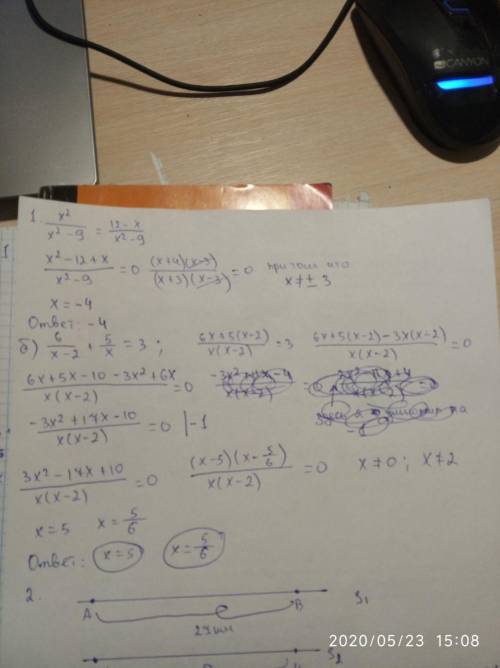 CANYON
1. x²/(x²-9) = (12-x)/(x²-9)
(x²-12+x)/(x²-9) = 0 (x+4)(x-3)/((x+3)(x-3)) = 0 при том что x ≠ ± 3
x = -4
Ответ: -4
б) 6/(x-2) + 5/x = 3 ; (6x+5(x-2))/(x(x-2)) = 3 (6x+5(x-2)-3x(x-2))/(x(x-2)) = 0
(6x+5x-10-3x²+6x)/(x(x-2)) = 0
(-3x²+17x-10)/(x(x-2)) = 0 |-1
(3x²-17x+10)/(x(x-2)) = 0 (x-5)(x-5/6)/(x(x-2)) = 0 x ≠ 0 ; x ≠ 2
x = 5 x = 5/6
Ответ: x = 5 x = 5/6
2.
A B S₁
29 км
S₂
2020/05/23 15:08